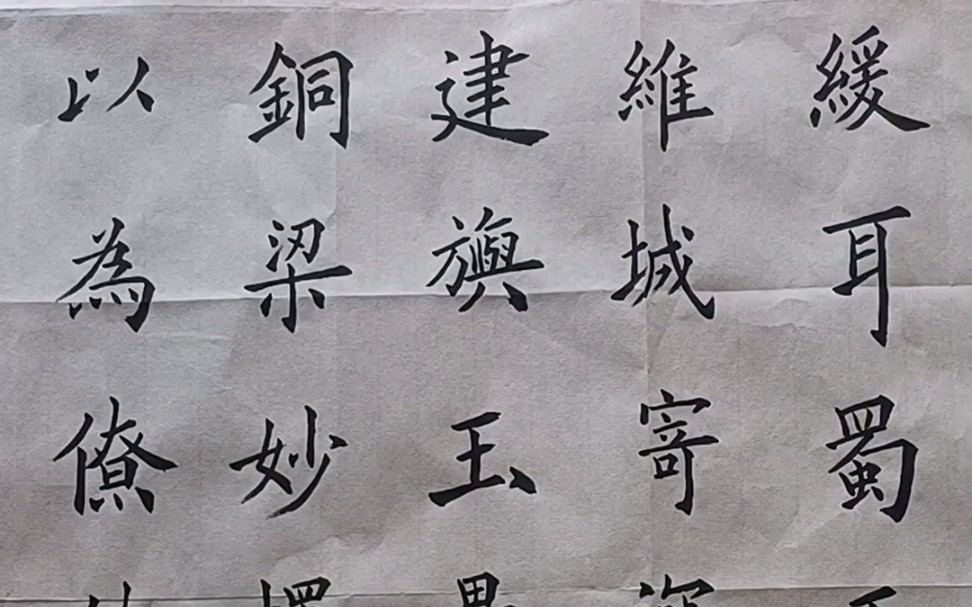 緩耳蜀
維城寄深
建旟玉壘
銅梁妙
以為僚